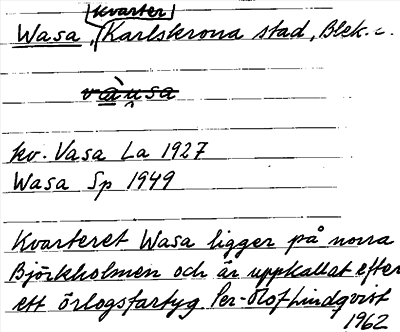 kvarter
Wasa, Karlskrona stad, Blek. l.
vàusa
kv. Vasa La 1927
Wasa Sp 1949
Kvarteret Wasa ligger på norra
Björkholmen och är uppkallat efter
ett örlogsfartyg. Per-Olof Lindqvist
1962